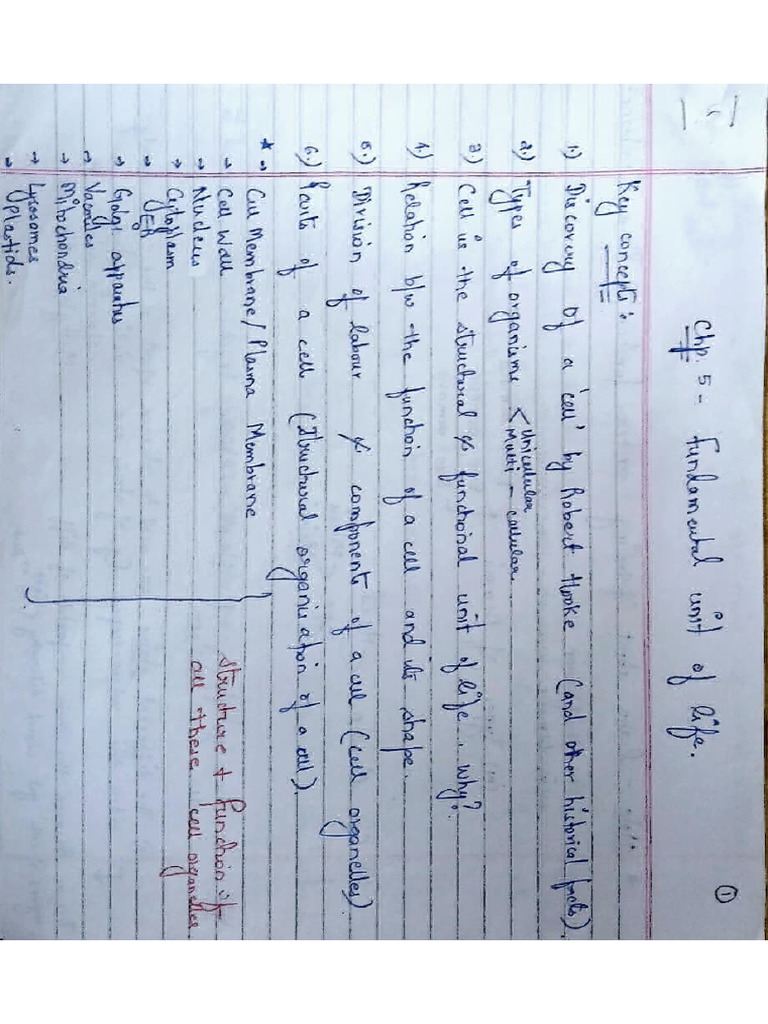 ①
Chp. 5 - Fundamental unit of life.
Key concepts:
1.) Discovery of a 'cell' by Robert Hooke (and other historical facts).
2.) Types of organisms < Unicellular
Multi - cellular
3.) Cell is the structural & functional unit of life, why?
4.) Relation b/w the function of a cell and its shape.
5.) Division of labour & components of a cell (cell organelles)
6.) Parts of a cell (Structural organisation of a cell).
* → Cell Membrane / Plasma Membrane
→ Cell wall
→ Nucleus
→ Cytoplasm
→ ER
→ Golgi apparatus
→ Vacuoles
→ Mitochondria
→ Lysosomes
→ plastids.
Structure + function of
all these cell organelles